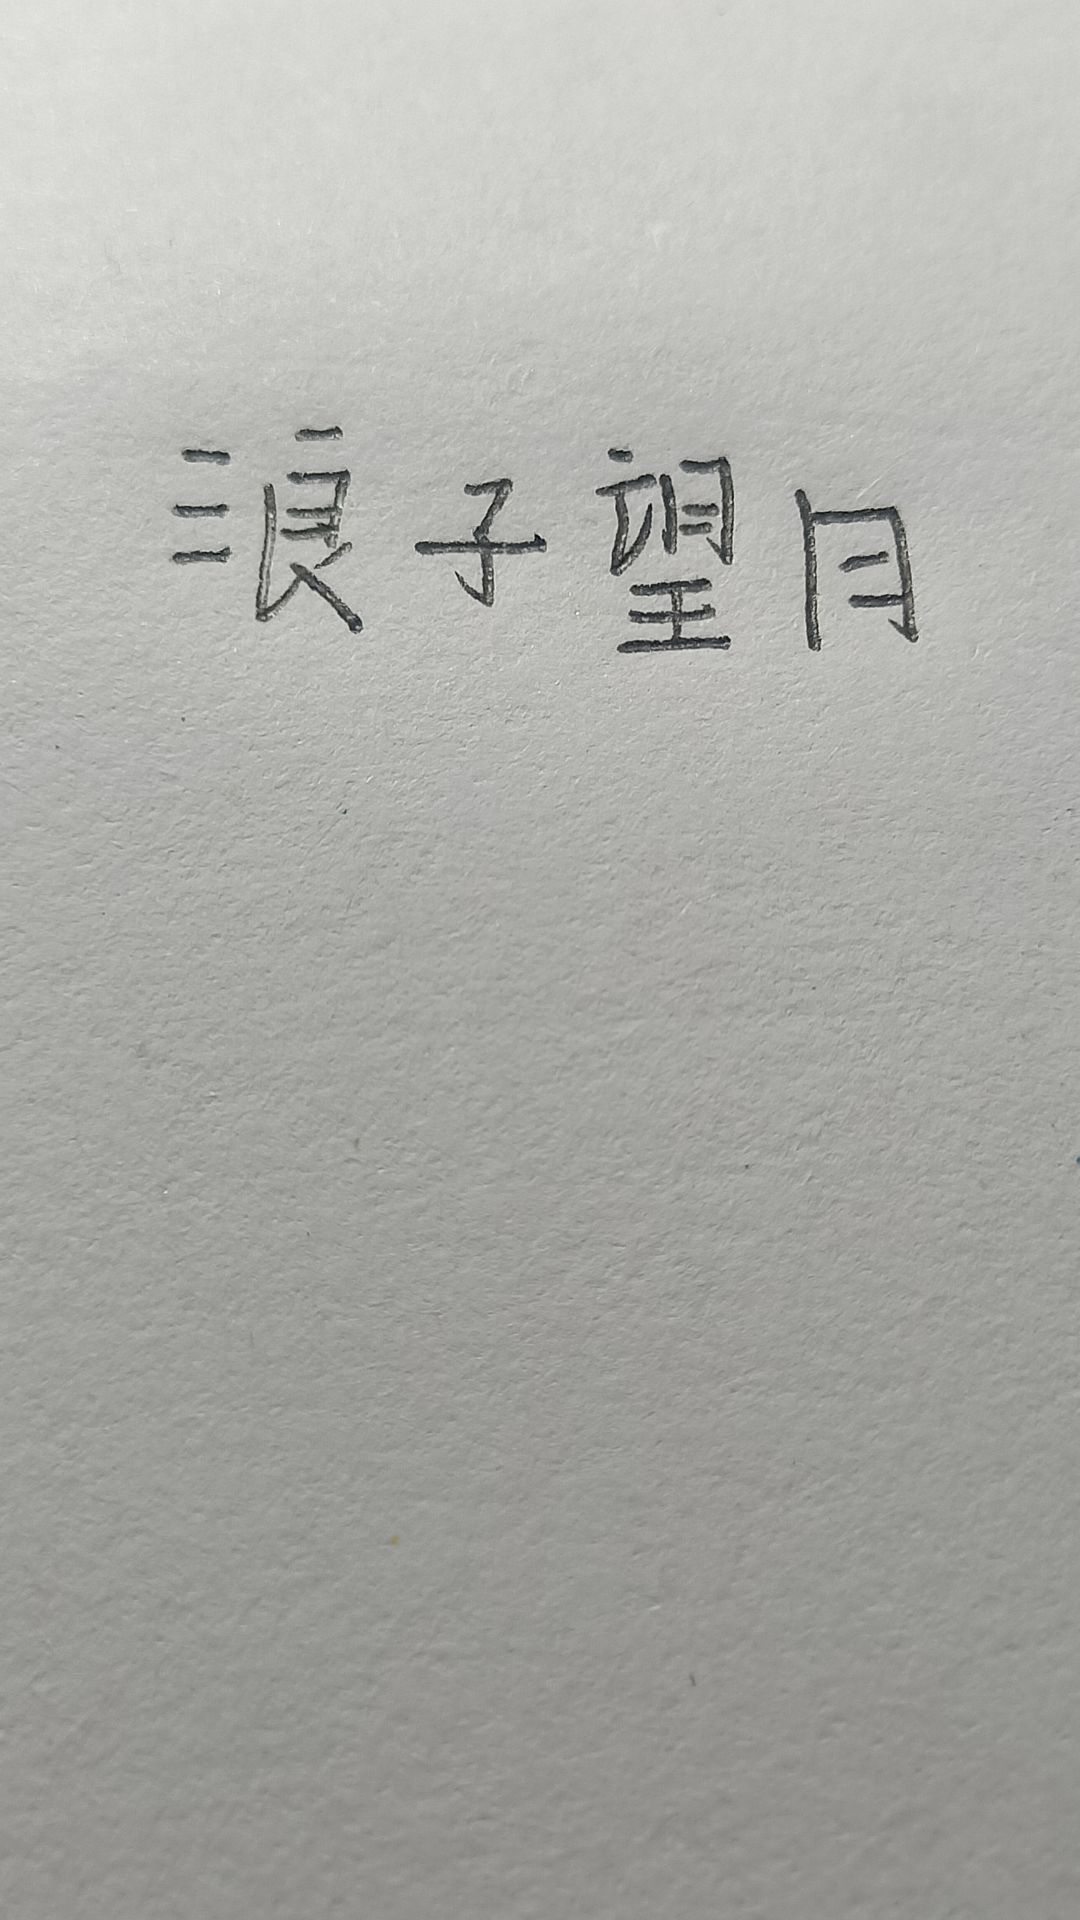 浪子望月